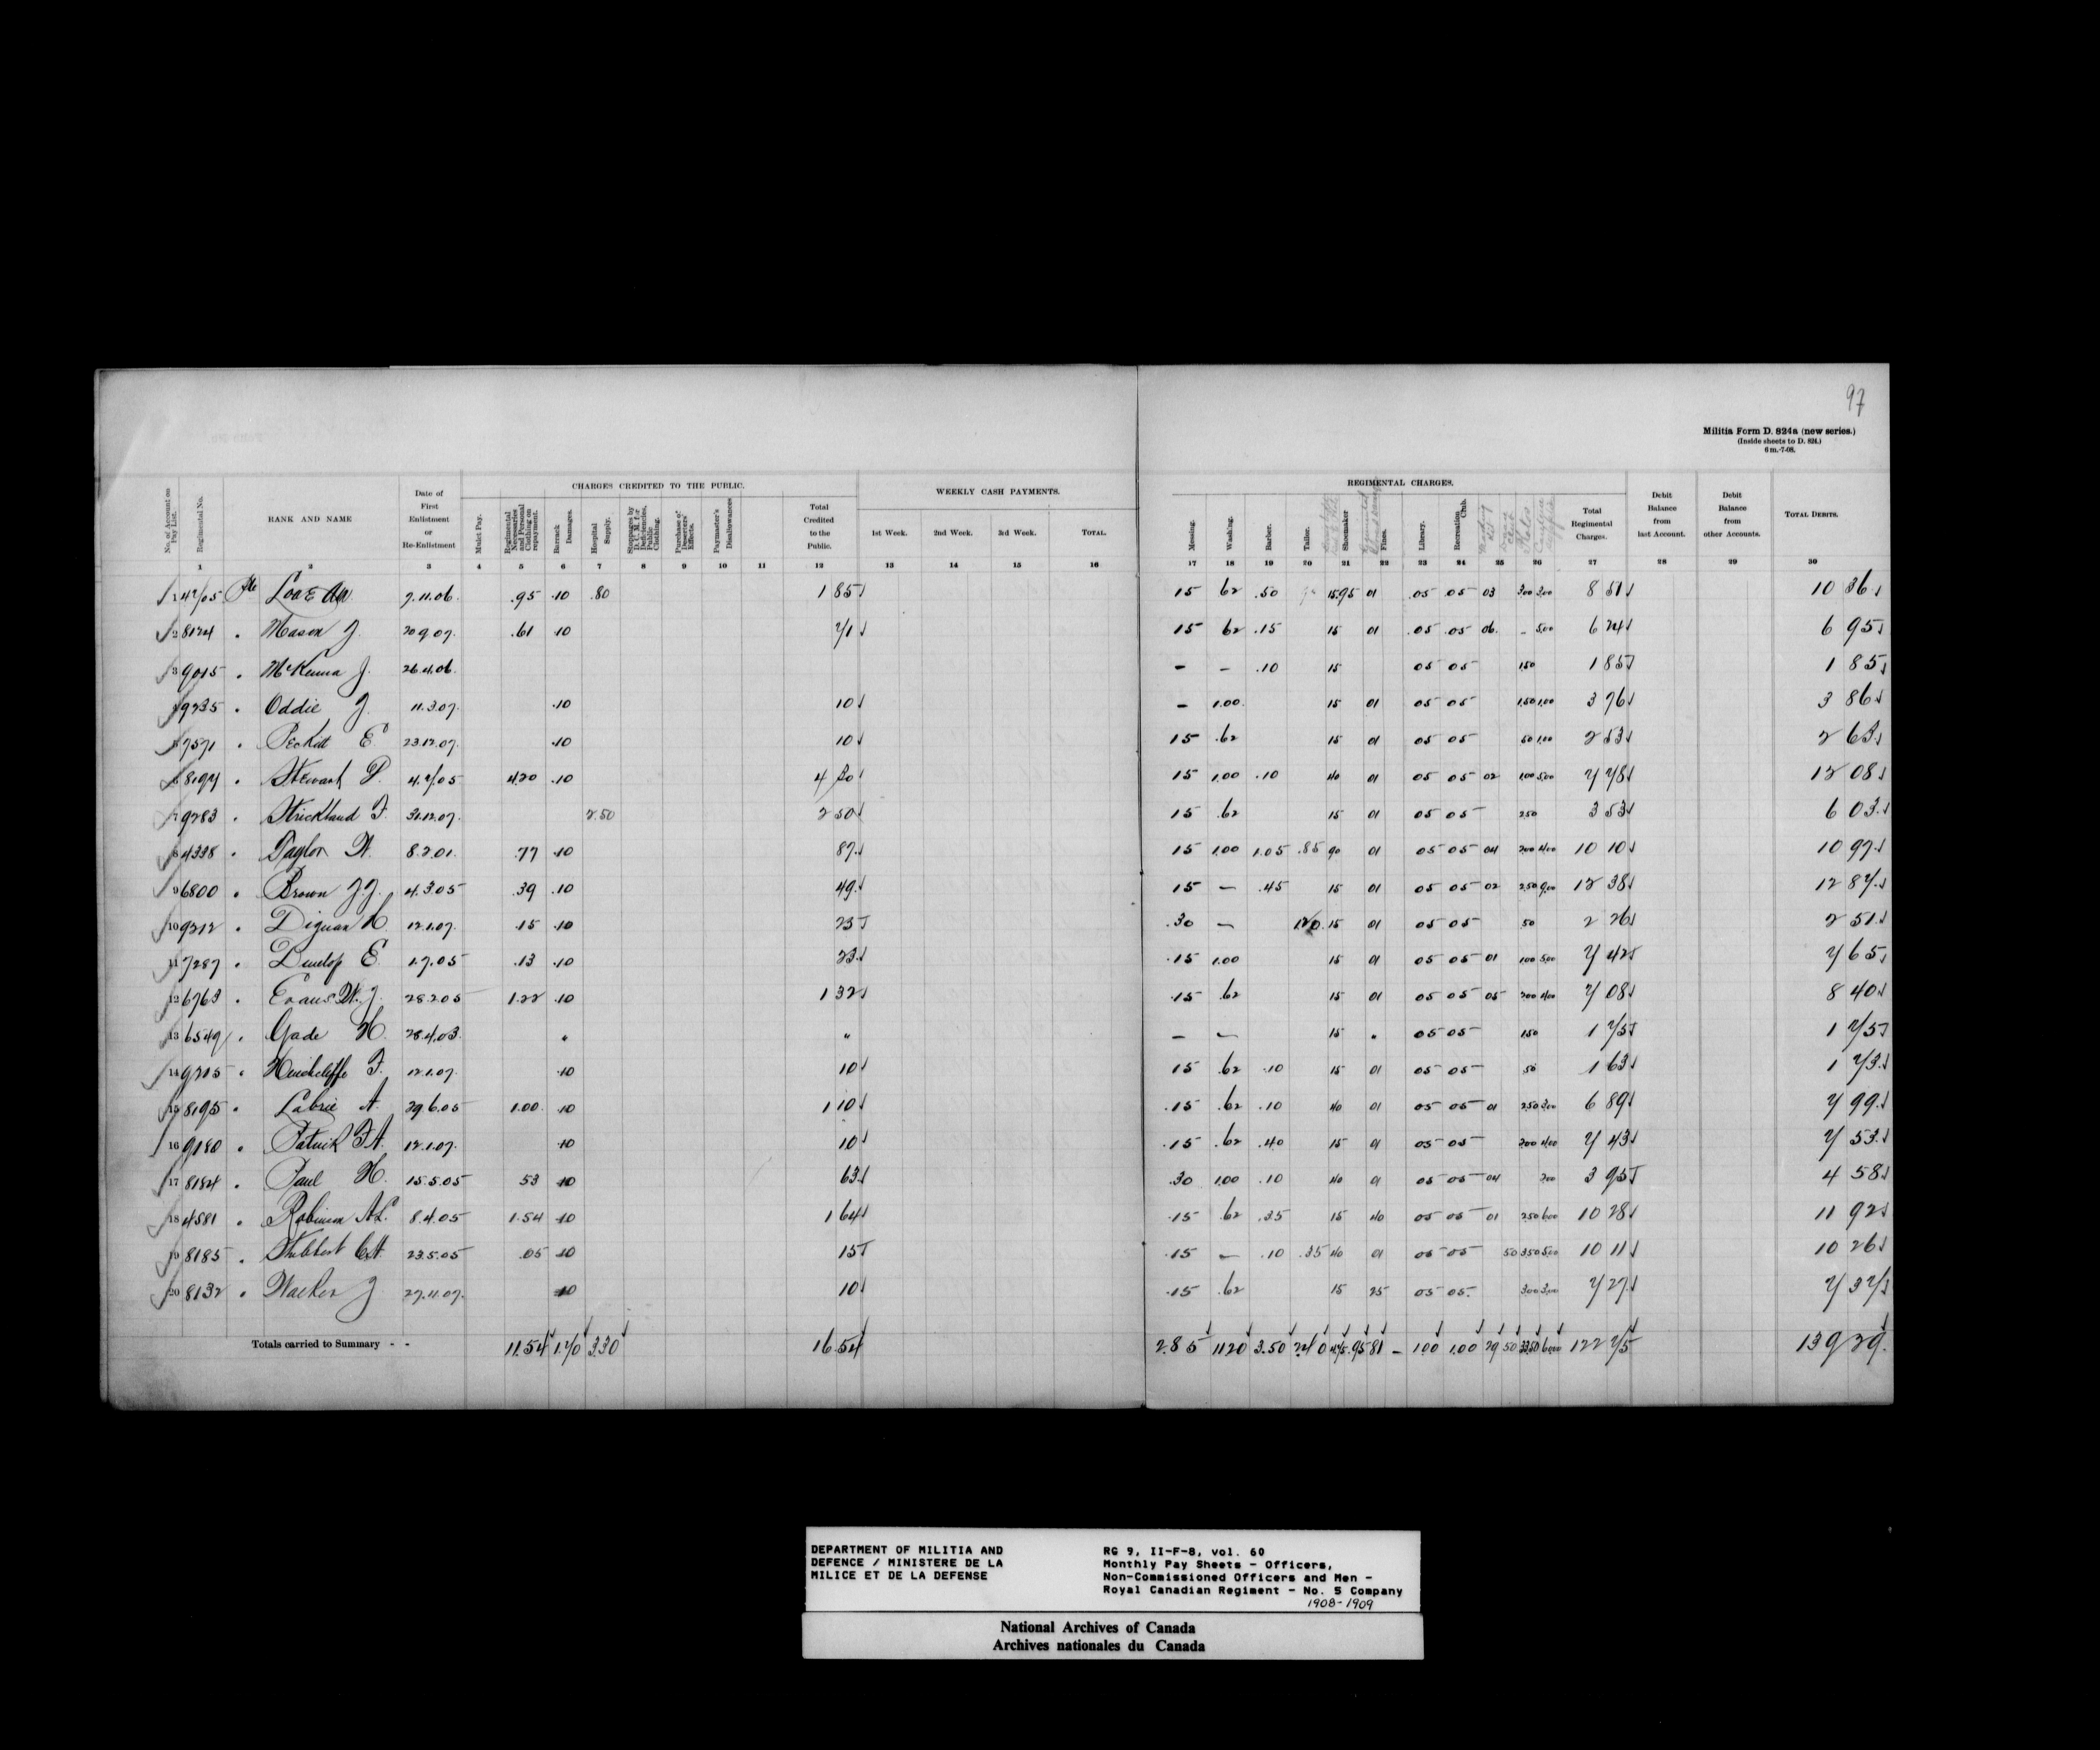 97
Militia Form D. 824a (new series.)
(Inside sheets to D. 824.)
6 m.-7-08.
CHARGES CREDITED TO THE PUBLIC. WEEKLY CASH PAYMENTS. REGIMENTAL CHARGES.
No. of Account on Pay List. Regimental No. RANK AND NAME Date of First Enlistment or Re-Enlistment Mulct Pay. Regimental Necessaries and Personal Clothing on repayment. Barrack Damages. Hospital Supply. Stoppages by D. C. M. for Deficiencies, Public Clothing. Purchase of Deserters' Effects. Paymaster's Disallowances Total Credited to the Public. 1st Week. 2nd Week. 3rd Week. TOTAL. Messing. Washing. Barber. Tailor. Shoemaker Fines. Library. Recreation Club. Total Regimental Charges. Debit Balance from last Account. Debit Balance from other Accounts. TOTAL DEBITS.
1 2 3 4 5 6 7 8 9 10 11 12 13 14 15 16 17 18 19 20 21 22 23 24 25 26 27 28 29 30
1 Pte 7.11.06. .95 .10 .80 1 85 15 62 .50 15 .95 01 .05 .05 03 3.00 3.00 8 51 10 36
2 8124 " Mason J. 20.9.07. .61 .10 71 15 62 .15 15 01 .05 .05 06. - 5.00 6 24 6 95
3 9015 " McKenna J. 26.4.06. - - .10 15 05 05 1.50 1 85 1 85
4 9235 " Oddie J. 11.3.07. .10 10 - 1.00. 15 01 05 05 1.50 1.00 3 76 3 86
5 7571 " Peckett E 23.12.07. .10 10 15 .62 15 01 05 05 50 1.00 2 53 2 63
6 8194 " Stewart P. 4.7.05 4.20 .10 4 30 15 1.00 .10 40 01 05 05 02 1.00 5.00 7 78 12 08
7 9283 " Strickland F. 31.12.07. 2.50 2 50 15 .62 15 01 05 05 2.50 3 53 6 03
8 4338 " Taylor W. 8.2.01. .77 .10 87 15 1.00 1.05 .85 90 01 05 05 04 2.00 4.00 10 10 10 97
9 6800 " Brown J.J. 4.3.05 .39 .10 49 15 - .45 15 01 05 05 02 2.50 9.00 12 38 12 87
10 9212 " Diguan H 12.1.07. .15 .10 25 .30 - 1.20 15 01 05 05 50 2 26 2 51
11 7287 " Dunlop E. 1.7.05 .13 .10 23 .15 1.00 15 01 05 05 01 1.00 5.00 7 42 7 65
12 6763 " Evans W.J. 28.2.05 1.22 .10 1 32 .15 .62 15 01 05 05 05 2.00 4.00 7 08 8 40
13 6549 " Gade H. 28.4.03. " " - - 15 " 05 05 1.50 1 75 1 75
14 9205 " Hinchcliffe F. 12.1.07. .10 10 15 .62 .10 15 01 05 05 50 1 63 1 73
15 8195 " Labrie A. 29.6.05 1.00 .10 1 10 .15 .62 .10 40 01 05 05 01 2.50 3.00 6 89 7 99
16 9180 " Patrick F.A. 12.1.07. .10 10 .15 .62 .40 15 01 05 05 2.00 4.00 7 43 7 53
17 8184 " Paul H. 15.5.05 53 10 63 .30 1.00 .10 40 01 05 05 04 2.00 3 95 4 58
18 4581 " Robinson A.L. 8.4.05 1.54 .10 1 64 .15 .62 .35 15 40 05 05 01 2.50 6.00 10 28 11 92
19 8185 " 23.5.05 .05 10 15 .15 - .10 .35 40 01 05 05 50 3.50 5.00 10 11 10 26
20 8132 " Walker J 27.11.07. 10 10 .15 .62 15 25 05 05. 3.00 3.00 7 27 7 37
Totals carried to Summary - - 11.54 1.70 3.30 16.54 2.85 11.20 3.50 2.40 4.45 .95 81 - 1.00 1.00 29 50 33.50 60.00 122 75 139 29
DEPARTMENT OF MILITIA AND
DEFENCE / MINISTERE DE LA
MILICE ET DE LA DEFENSE
RG 9, II-F-8, vol. 60
Monthly Pay Sheets - Officers,
Non-Commissioned Officers and Men -
Royal Canadian Regiment - No. 5 Company
1908-1909
National Archives of Canada
Archives nationales du Canada